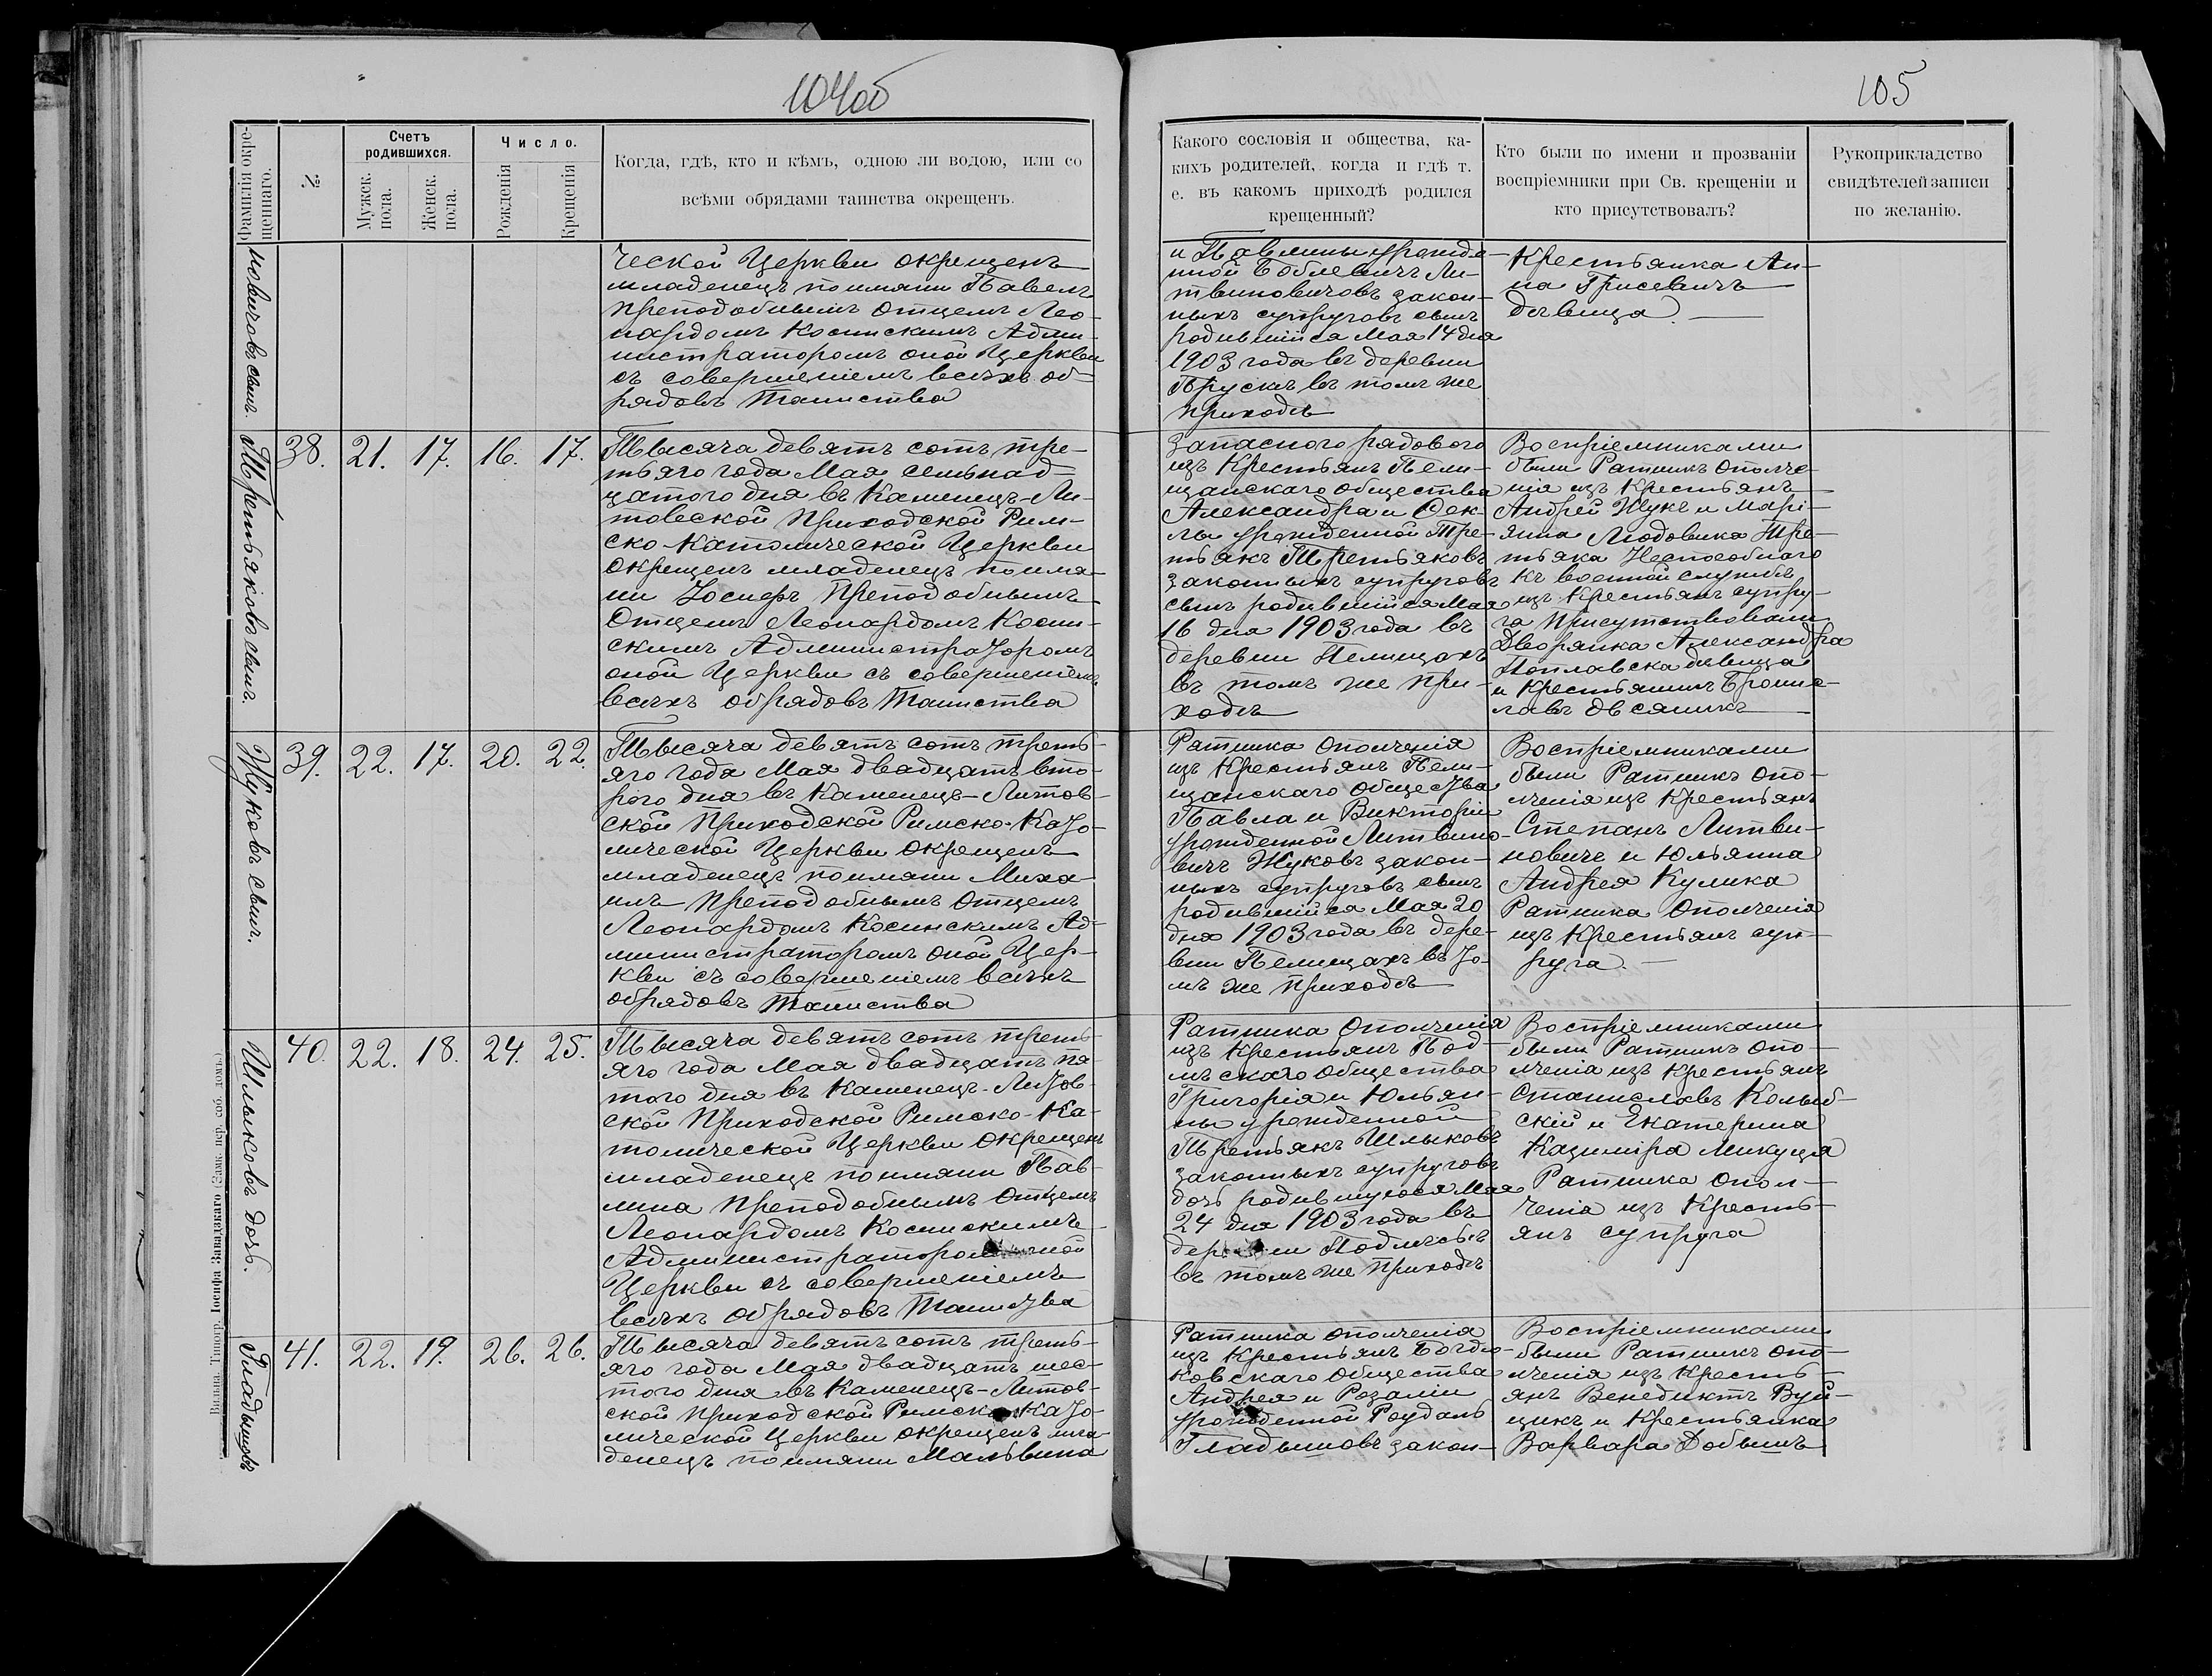 104об
Фамилія окре-
щеннаго.
№
Счетъ
родившихся.
Мужск.
пола.
Женск.
пола.
Число.
Рожденія
Крещенія
Когда, гдѣ, кто и кѣмъ, одною ли водою, или со
всѣми обрядами таинства окрещенъ.
новичовъ сынъ.
ческой Церкви окрещенъ
младенецъ поимяни Павелъ
преподобнымъ Отцемъ Лео-
нардомъ Косинскимъ Адми-
нистраторомъ оной Церкви
съ совершеніемъ всѣхъ об-
рядовъ Таинства
Третьяковъ сынъ.
38. 21. 17. 16. 17.
Тысяча девятъ сотъ тре-
тьяго года Мая семьнад
цатого дня въ Каменецъ-Ли-
товской Приходской Рим-
ско-Католической Церкви
окрещенъ младенецъ поимя-
ни Іосифъ Преподобнымъ
Отцемъ Леонардомъ Косин-
скимъ Администраторомъ
оной Церкви съ совершеніемъ
всѣхъ обрядовъ Таинства
Жуковъ сынъ.
39. 22. 17. 20. 22.
Тысяча девятъ сотъ треть-
яго года Мая двадцатъ вто-
рого дня въ Каменецъ-Литов-
ской Приходской Римско-Като-
лической Церкви окрещенъ
младенецъ поимяни Миха-
илъ Преподобнымъ Отцемъ
Леонардомъ Косинскимъ Ад-
министраторомъ оной Цер-
кви съ совершеніемъ всѣхъ
обрядовъ Таинства
Шлыковъ дочь.
40. 22. 18. 24. 25.
Тысяча девятъ сотъ треть-
яго года Мая двадцатъ пя-
того дня въ Каменецъ-Литов-
ской Приходской Римско-Ка-
толической Церкви окрещенъ
младенецъ поимяни Пав-
лина Преподобнымъ Отцемъ
Леонардомъ Косинскимъ
Администраторомъ оной
Церкви съ совершеніемъ
всѣхъ обрядовъ Таинства
Гладышовъ
41. 22. 19. 26. 26.
Тысяча девятъ сотъ треть-
яго года Мая двадцатъ шес-
того дня въ Каменецъ-Литов-
ской Приходской Римско-Като-
лической Церкви окрещенъ мла-
денецъ поимяни Мальвина
Вильна. Типогр. Іосифа Завадзкаго (Замк. пер. соб. домъ.)
105
Какого сословія и общества, ка-
кихъ родителей, когда и гдѣ т.
е. въ какомъ приходѣ родился
крещенный?
Кто были по имени и прозваніи
воспріемники при Св. крещеніи и
кто присутствовалъ?
Рукоприкладство
свидѣтелей записи
по желанію.
и Павлины урожде-
нной Боблевичъ Ли-
твиновичовъ закон-
ныхъ супруговъ сынъ
родившійся Мая 14 дня
1903 года въ деревни
Прускѣ въ томъ же
приходѣ
Крестьянка Ан-
на Грисевичъ
дѣвица.
Запасного рядового
изъ Крестьянъ Пели-
щанскаго общества
Александра и Фек-
лы урожденной Тре-
тьякъ Третьяковъ
законныхъ супруговъ
сынъ родившійся Мая
16 дня 1903 года въ
деревни Пелищахъ
въ томъ же при-
ходѣ
Воспріемниками
были Ратникъ Ополче-
нія изъ Крестьянъ
Андрей Жукъ и Марі-
янна Людовика Тре-
тьяка Неспособнаго
къ военной службѣ
изъ Крестьянъ супру-
га Присутствовали
Дворянка Александра
Поплавска дѣвица
и Крестьянинъ Бронис-
лавъ Овсяникъ
Ратника Ополченія
изъ Крестьянъ Пели-
щанскаго общества
Павла и Викторіи
урожденной Литвино-
вичъ Жуковъ закон-
ныхъ супруговъ сынъ
родившійся Мая 20
дня 1903 года въ дере-
вни Пелищахъ въ то-
мъ же приходѣ
Воспріемниками
были Ратникъ Опо-
лченія изъ Крестьянъ
Степанъ Литви-
новичъ и Юльянна
Андрея Кулика
Ратника Ополченія
изъ Крестьянъ суп-
руга.
Ратника Ополченія
изъ Крестьянъ Под-
лѣскаго общества
Григорія и Юльян-
ны урожденной
Третьякъ Шлыковъ
законныхъ супруговъ
дочь родившуюся Мая
24 дня 1903 года въ
деревни Подлѣсьѣ
въ томъ же приходѣ
Воспріемниками
были Ратникъ Опо-
лченія изъ Крестьянъ
Станиславъ Колыб-
скій и Екатерина
Казиміра Микуця
Ратника Опол-
ченія изъ Кресть-
янъ супруга
Ратника ополченія
изъ Крестьянъ Богдю-
ковскаго общества
Андрея и Розаліи
урожденной Роудаль
Гладышовъ закон-
Воспріемниками
были Ратникъ Опо-
лченія изъ Кресть-
янъ Венедиктъ Вуй-
цикъ и Крестьянка
Варвара Добышъ